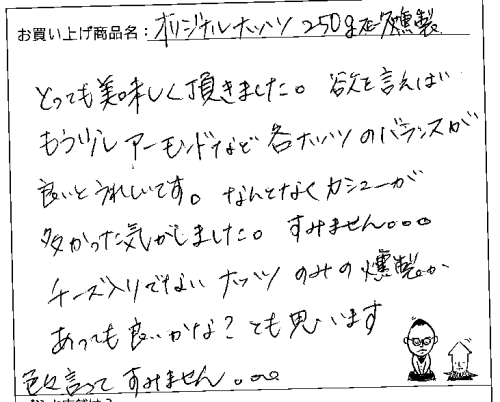 お買い上げ商品名：オリジナルナッツ 250g 燻製
とっても美味しく頂きました。 欲を言えば
もう少し アーモンドなど 各ナッツ のバランスが
良いとうれしいです。 なんとなく カシューが
多かった気がしました。 すみません。。。
チーズ入りでない ナッツ のみの 燻製が
あっても 良いかな？ とも 思います
色々言って すみません 。。。